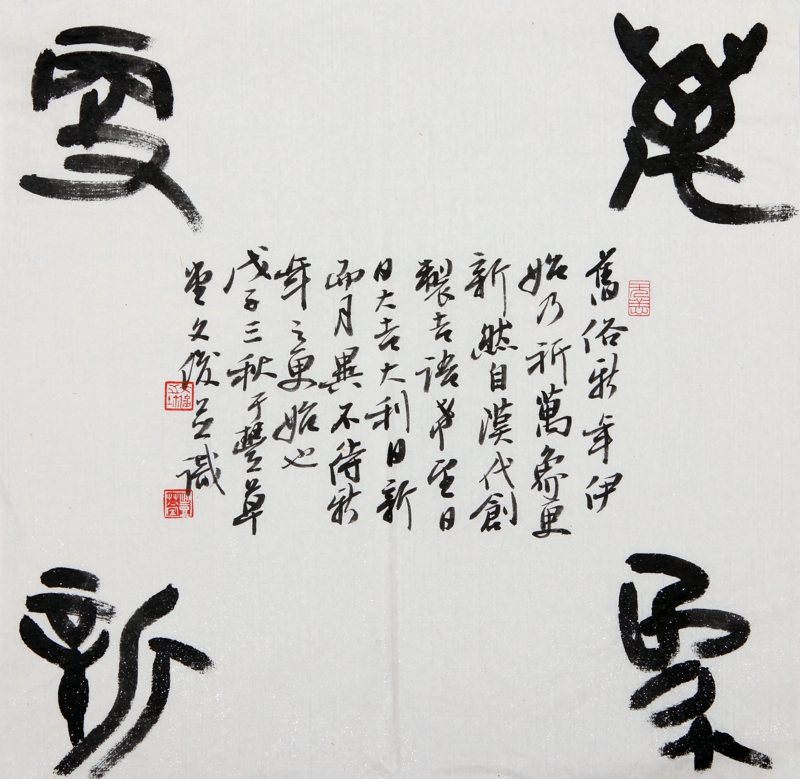 萬
象
更
新
舊俗新年伊
始乃祈萬象更
新然自漢代創
製吉語希望日
日大吉大利日新
而月異不待新
年之更始也
戊子三秋于豐草
堂文俊并識